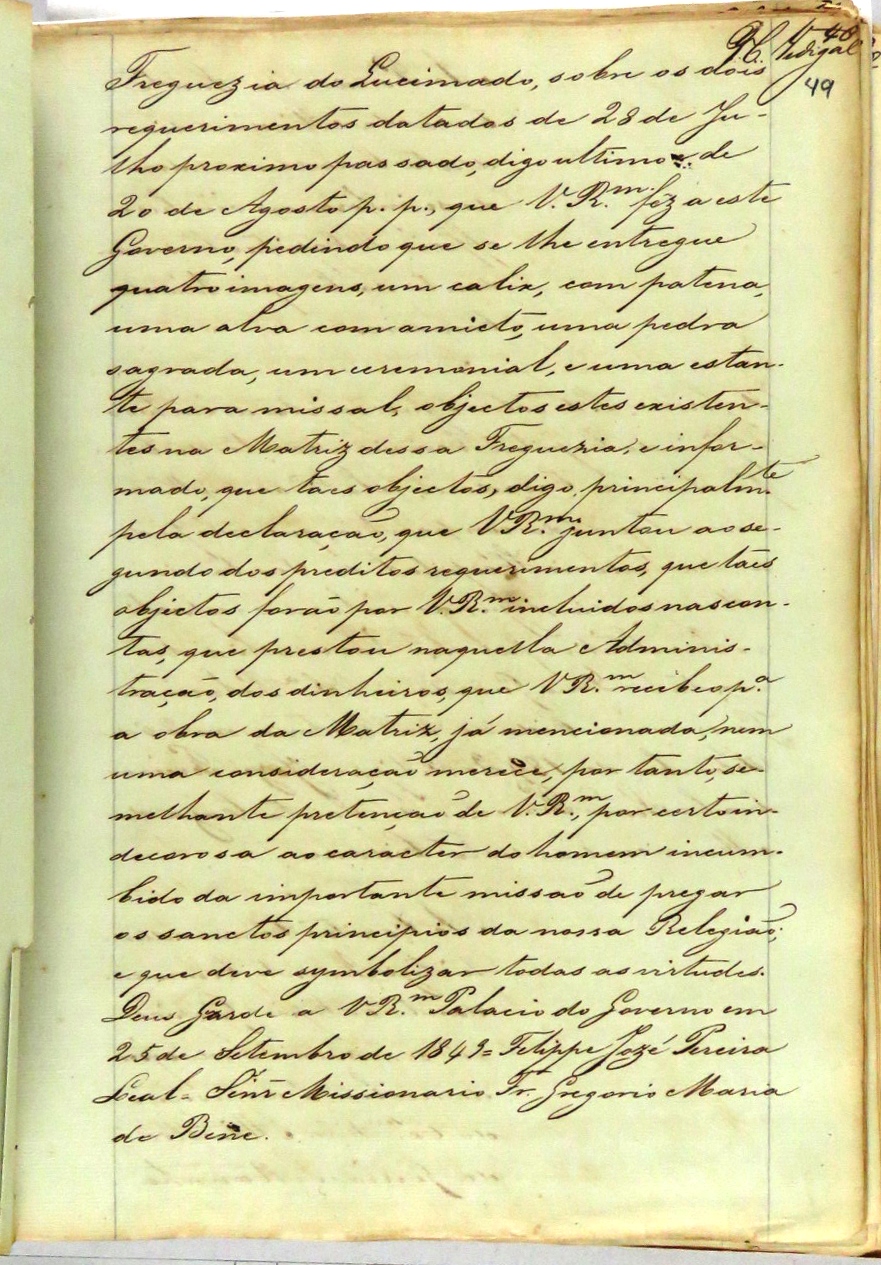 48
Vedigal
49
Freguezia do Queimado, sobre os dois
requerimentos datados de 28 de Ju-
lho proximo passado, digo ultimo e de
20 de Agosto p. p., que V. R.m fez a este
Governo, pedindo que se lhe entregue
quatro imagens, um calix, com patena,
uma alva com amicto, uma pedra
sagrada, um ceremonial, e uma estan-
te para missal, objectos estes existen-
tes na Matriz dessa Freguezia, e infor-
mado, que taes objectos, digo, principalm.te
pela declaração, que V R.m juntou ao se-
gundo dos preditos requerimentos, que taes
objectos forão por V. R.m incluidos nas con-
tas, que prestou naquella Adminis-
tração, dos dinheiros, que V R.m recebeo p.a
a obra da Matriz, já mencionada, nem
uma consideração merece, por tanto, se-
melhante pretenção de V. R.m, por certo in-
decorosa ao caracter do homem incum-
bido da importante missão de pregar
os sanctos principios da nossa Relegião;
e que deve symbolizar todas as virtudes.
Deus Garde a V R.m Palacio do Governo em
25 de Setembro de 1849= Felippe Jozé Pereira
Leal= Senr Missionario Fr. Gregorio Maria
de Bene.